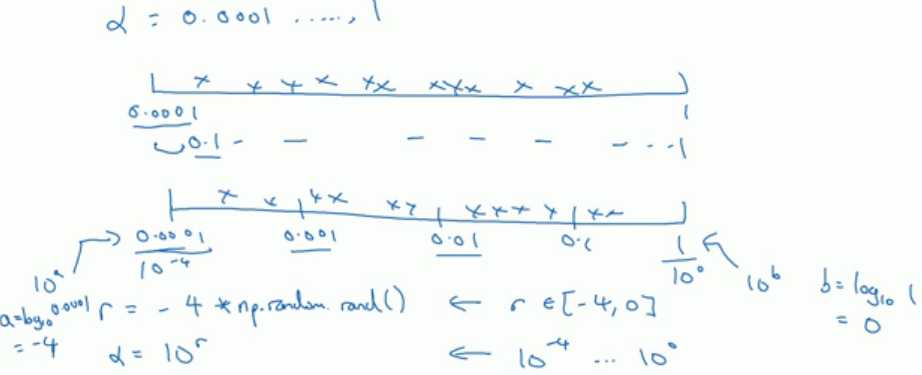 α = 0.0001 ....., 1
0.0001 1
0.1 - - - - - - . . - 1
0.0001 0.001 0.01 0.1 1
10^-4 10^0
10^a 10^b
a = log₁₀ 0.0001 = -4
r = -4 * np.random.rand() ← r ∈ [-4, 0]
b = log₁₀ 1 = 0
α = 10^r ← 10^-4 ... 10^0